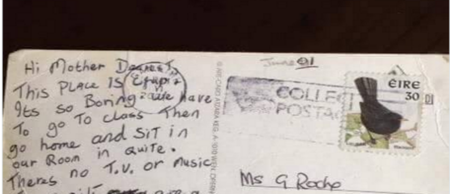 Hi Mother Dearest,
This Place Is Crap
Its so Boring we have
To go To class Then
go home and SiT in
our Room in Quite.
Theres no T.V. or Music
June 01
COLLEC
POSTA
ÉIRE
30
Ms G Roche